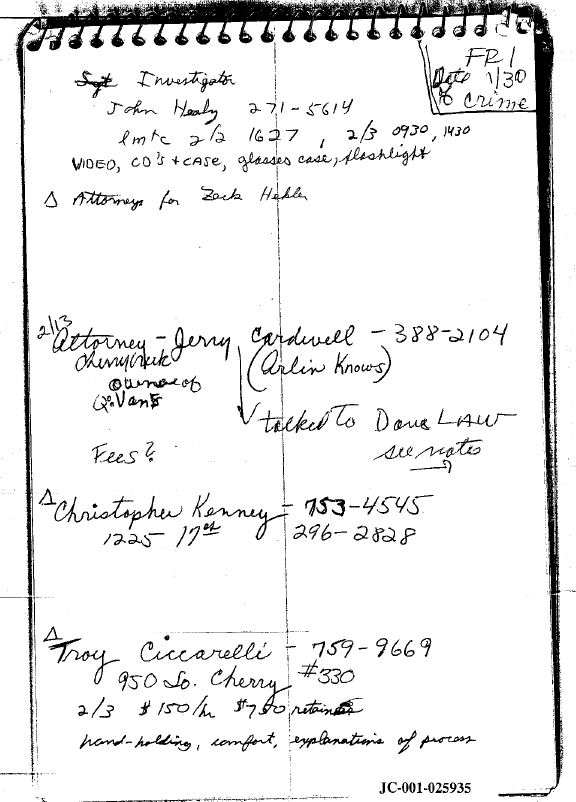 FRI
Date 1/30
to crime
Sgt Investigator
John Healy 271-5614
lmtc 2/2 1627, 2/3 0930, 1430
VIDEO, CD's + CASE, glasses case, flashlight
Δ Attorneys for Zeck Hehler
2/13
Attorney - Jerry Cardwell - 388-2104
Cherry Creek (Arlin Knows)
owner of
Vans
talked to Dave LAW
Fees? see notes
Δ Christopher Kenney - 753-4545
1225 17th 296-2828
Δ
Troy Ciccarelli - 759-9669
950 So. Cherry #330
2/3 $150/hr $750 retainer
hand-holding, comfort, explanations of process
JC-001-025935